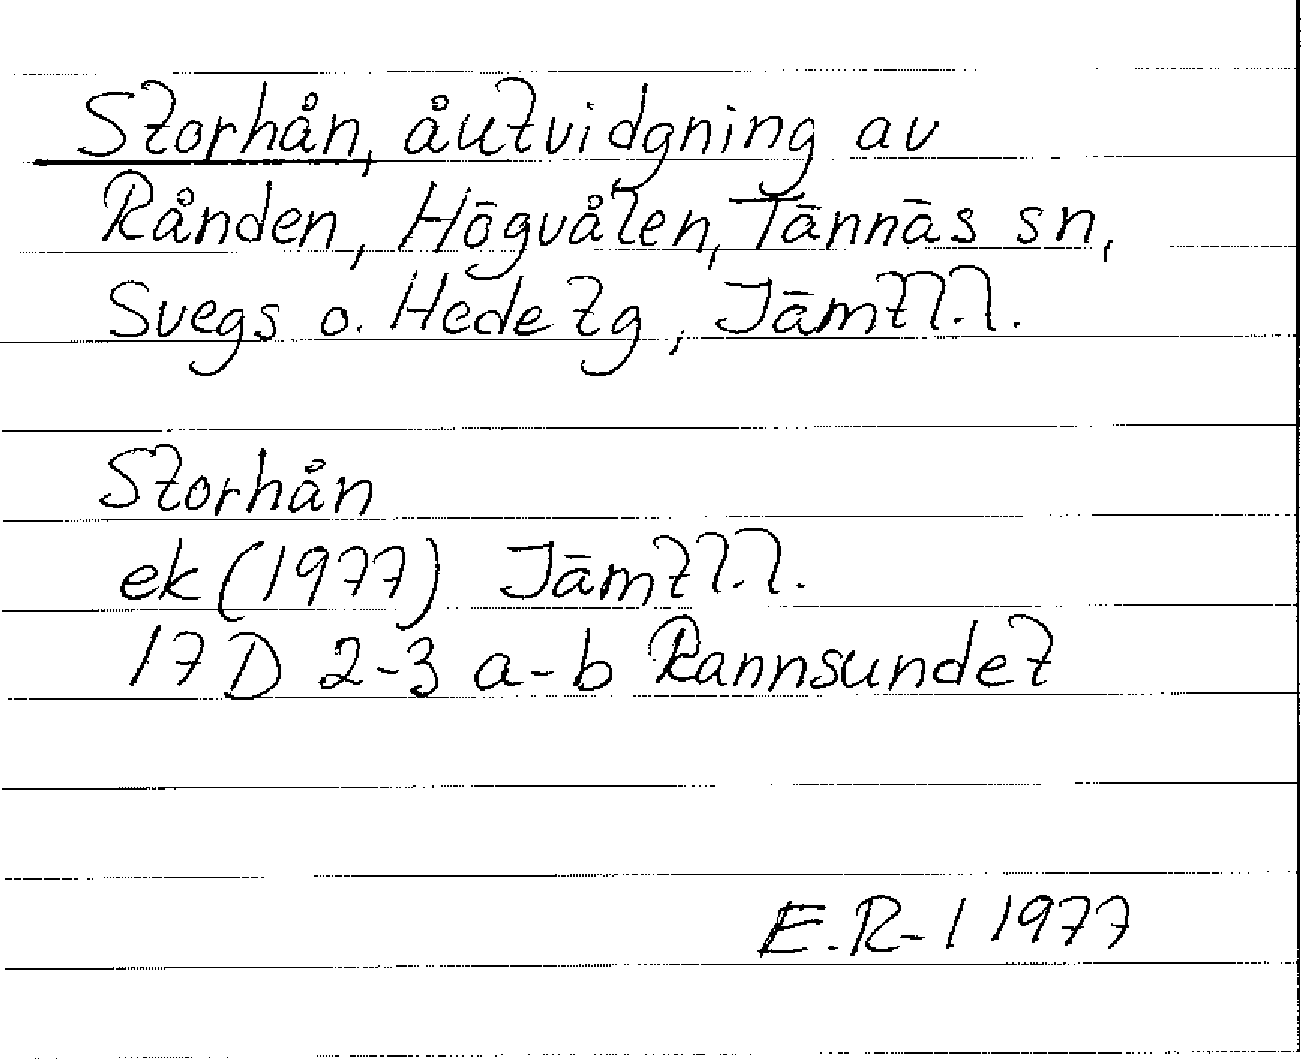 Storhån, åutvidgning av
Rånden, Högvålen, Tännäs sn,
Svegs o. Hede tg, Jämtl.l.
Storhån
ek (1977) Jämtl.l.
17D 2-3 a-b Rannsundet
E.R-l 1977